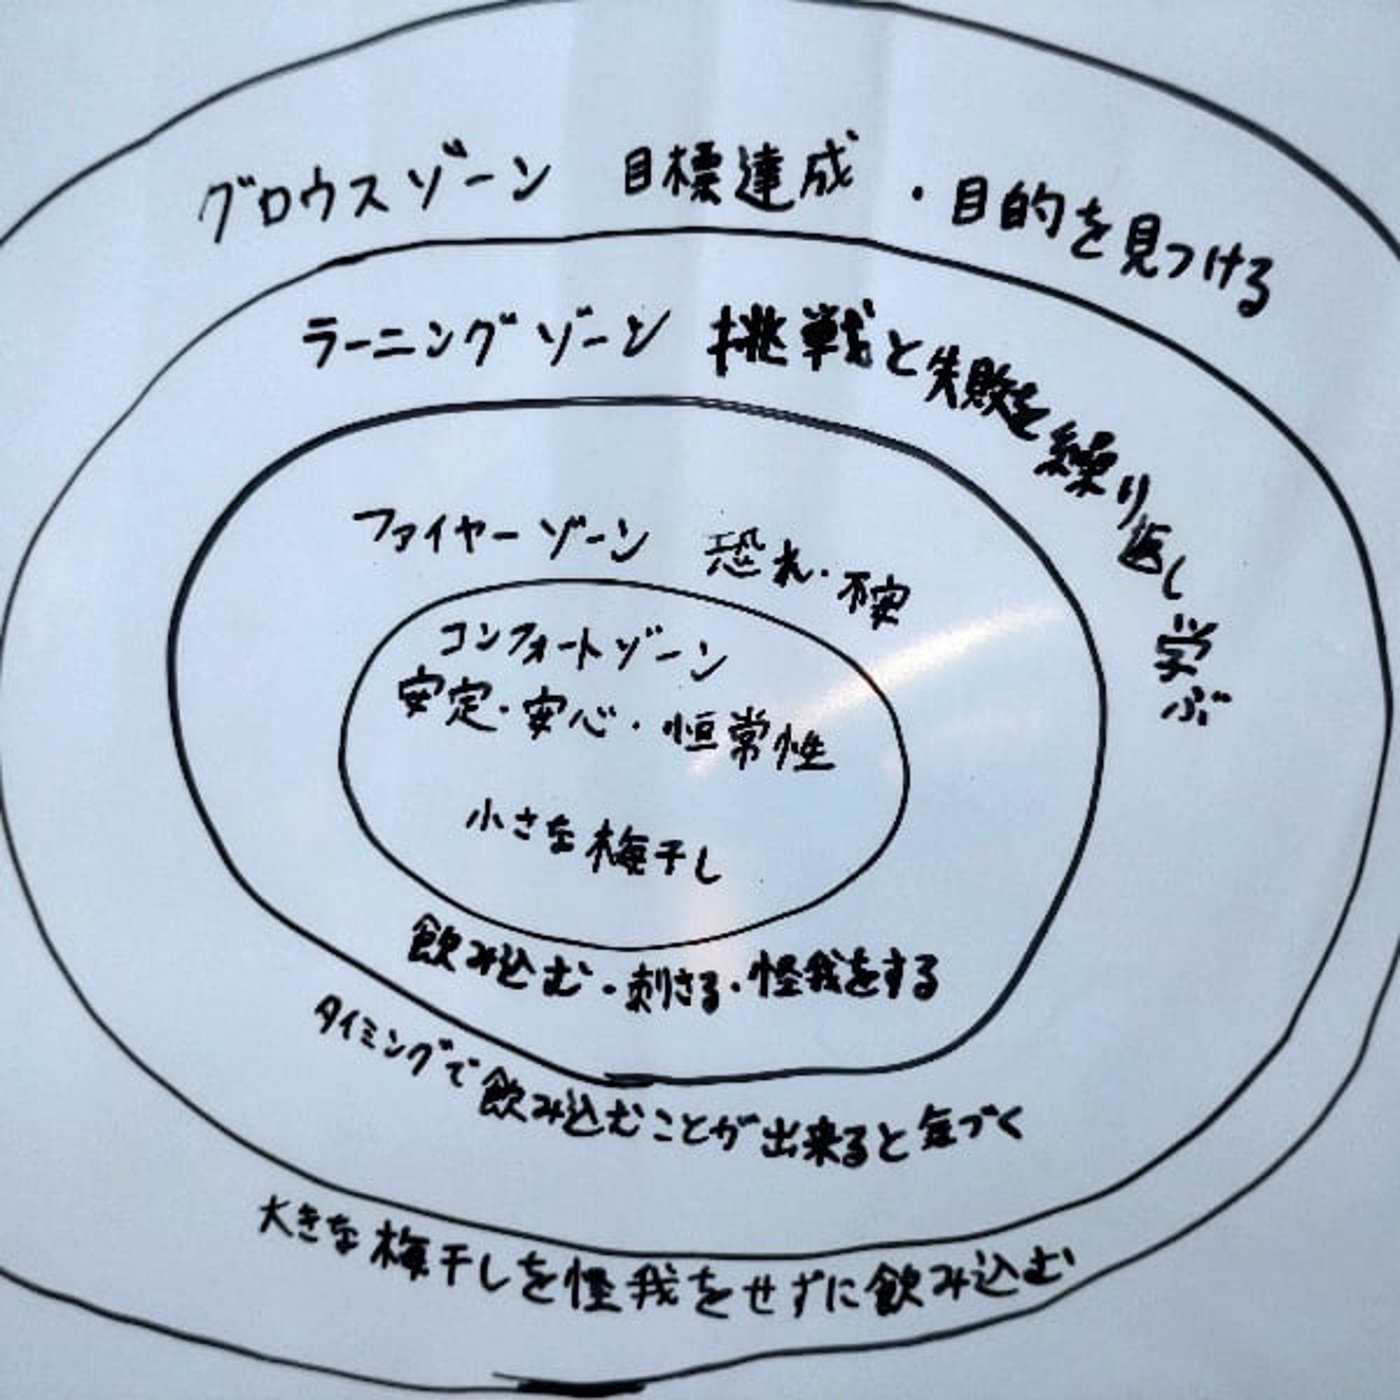 グロウスゾーン 目標達成・目的を見つける
ラーニングゾーン 挑戦と失敗を繰り返し学ぶ
ファイヤーゾーン 恐れ・不安
コンフォートゾーン
安定・安心・恒常性
小さな梅干し
飲み込む・刺さる・怪我をする
タイミングで飲み込むことが出来ると気づく
大きな梅干しを怪我をせずに飲み込む